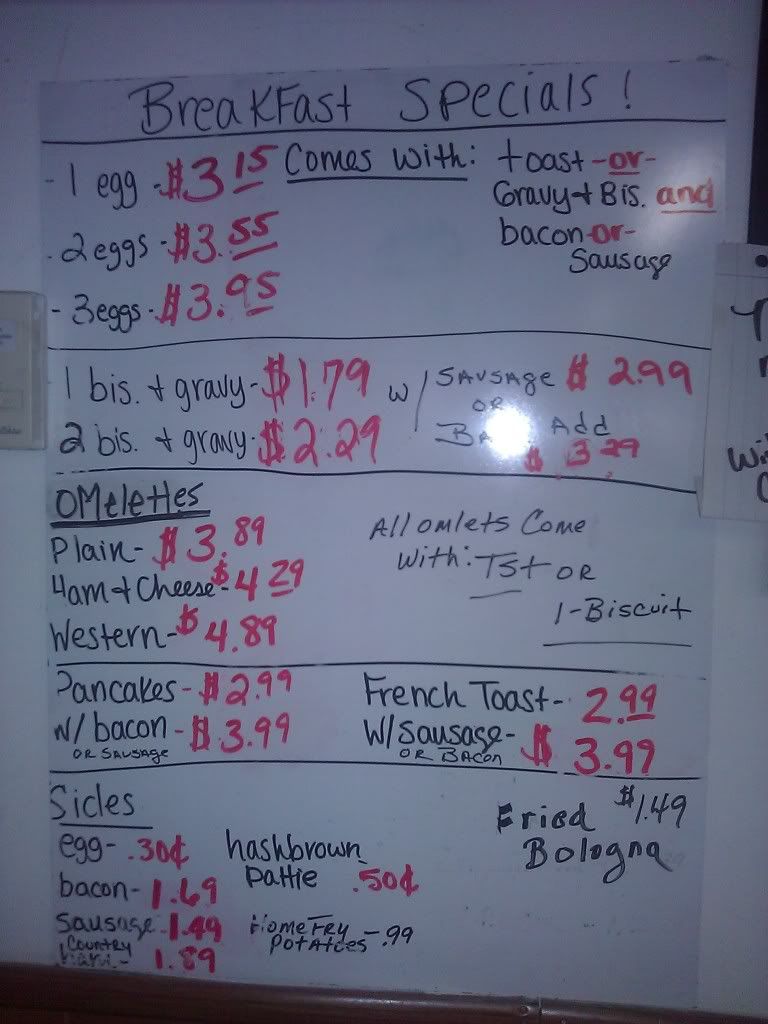 BreakFast Specials!
- 1 egg - $3.15 Comes With: toast -or-
Gravy + Bis. and
bacon -or-
Sausage
. 2 eggs - $3.55
- 3 eggs - $3.95
1 bis. + gravy - $1.79 w/ SAUSAGE $ 2.99
OR
2 bis. + gravy - $2.29
Add
$ 3.29
OMelettes
Plain - $3.89
Ham + Cheese - $4.29
Western - $4.89
All omlets Come
With: TST OR
1-Biscuit
Pancakes - $2.99
w/ bacon - $3.99
OR SAUSAGE
French Toast - 2.99
W/Sausage - $ 3.99
OR BACON
Sides
egg - .30¢
bacon - 1.69
Sausage - 1.49
Country
ham - 1.89
hashbrown
pattie .50¢
HomeFry
Potatoes - .99
Fried $1.49
Bologna